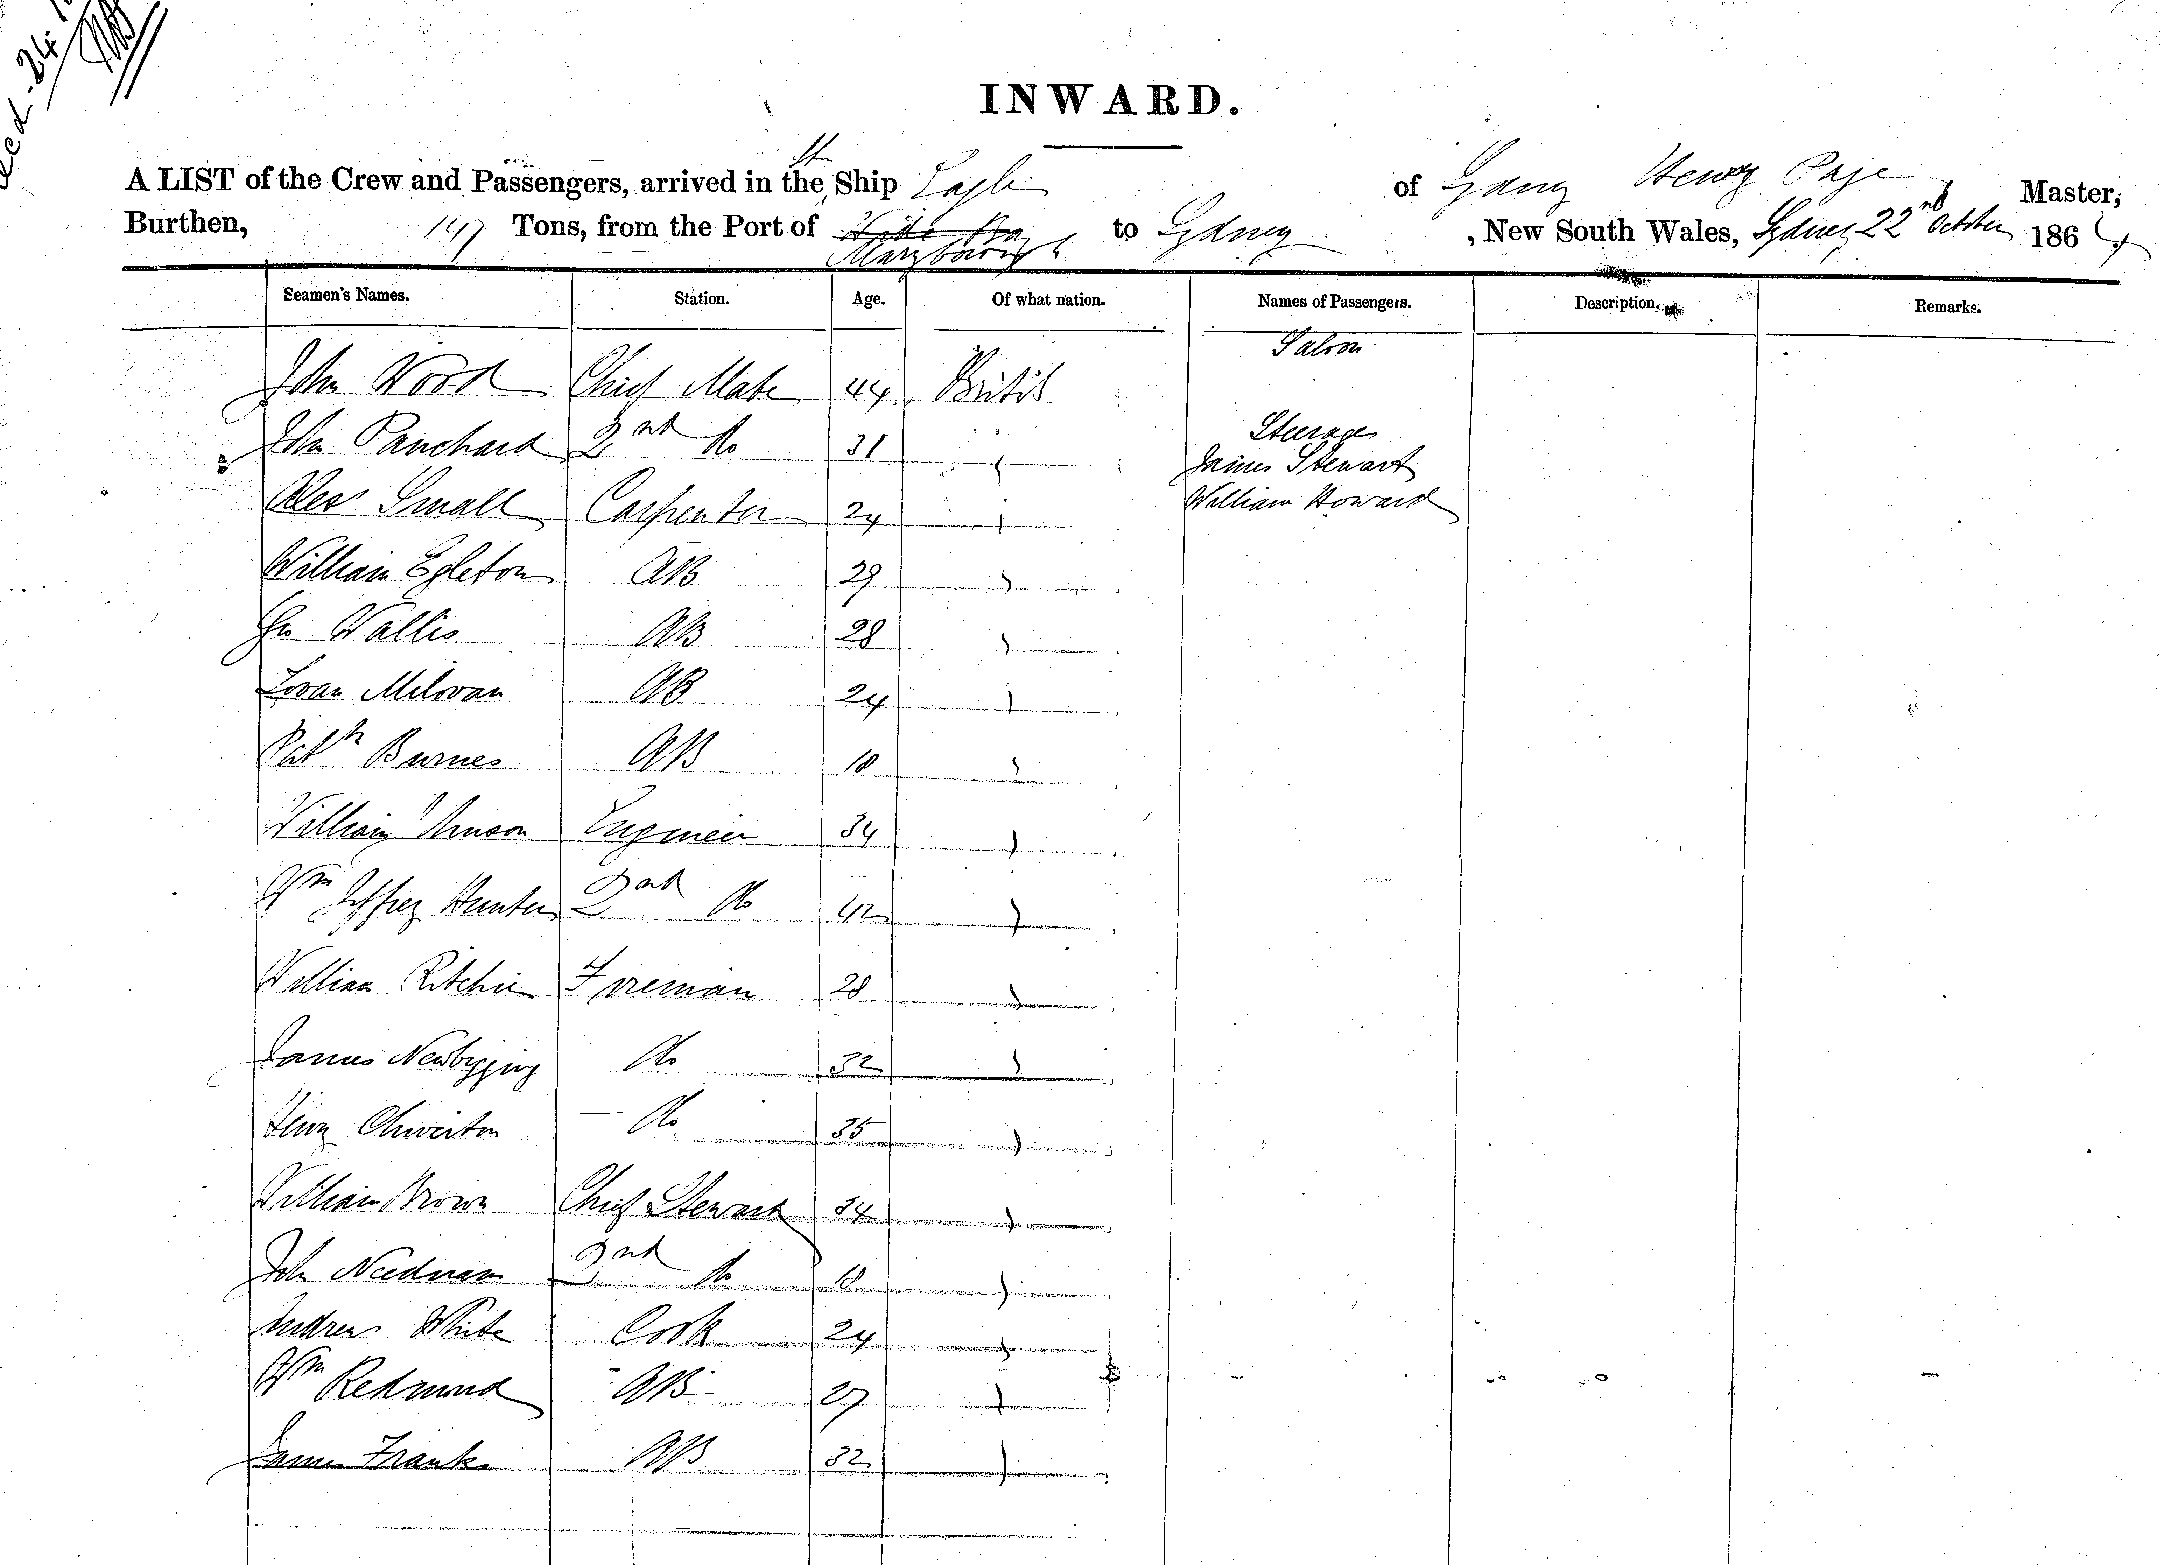 INWARD.
A LIST of the Crew and Passengers, arrived in the St Ship Eagle of Sydney Henry Page, Master,
Burthen, 147 Tons, from the Port of Wide Bay Maryborough to Sydney, New South Wales, Sydney 22nd October 186
Seamen's Names. Station. Age. Of what nation. Names of Passengers. Description. Remarks.
Saloon
John Wood Chief Mate 44 British
Steerage
John Panchard 2nd Do 31 "
James Stewart
Alexr Small Carpenter 24 "
William Howard
William Egleton AB 29 "
Geo Wallis AB 28 "
Milovan AB 24 "
Patk Burnes AB 18 "
William Engineer 34 "
Wm Jeffrey Hunter 2nd Do 42 "
William Ritchie Foreman 28 "
James Newbigging Do 32 "
Henry Chiverton Do 35 "
William Brown Chief Steward 34 "
John Needham 2nd Do 18 "
Andrew White Cook 24 "
Wm Redmond AB 27 "
James Franks AB 32 "